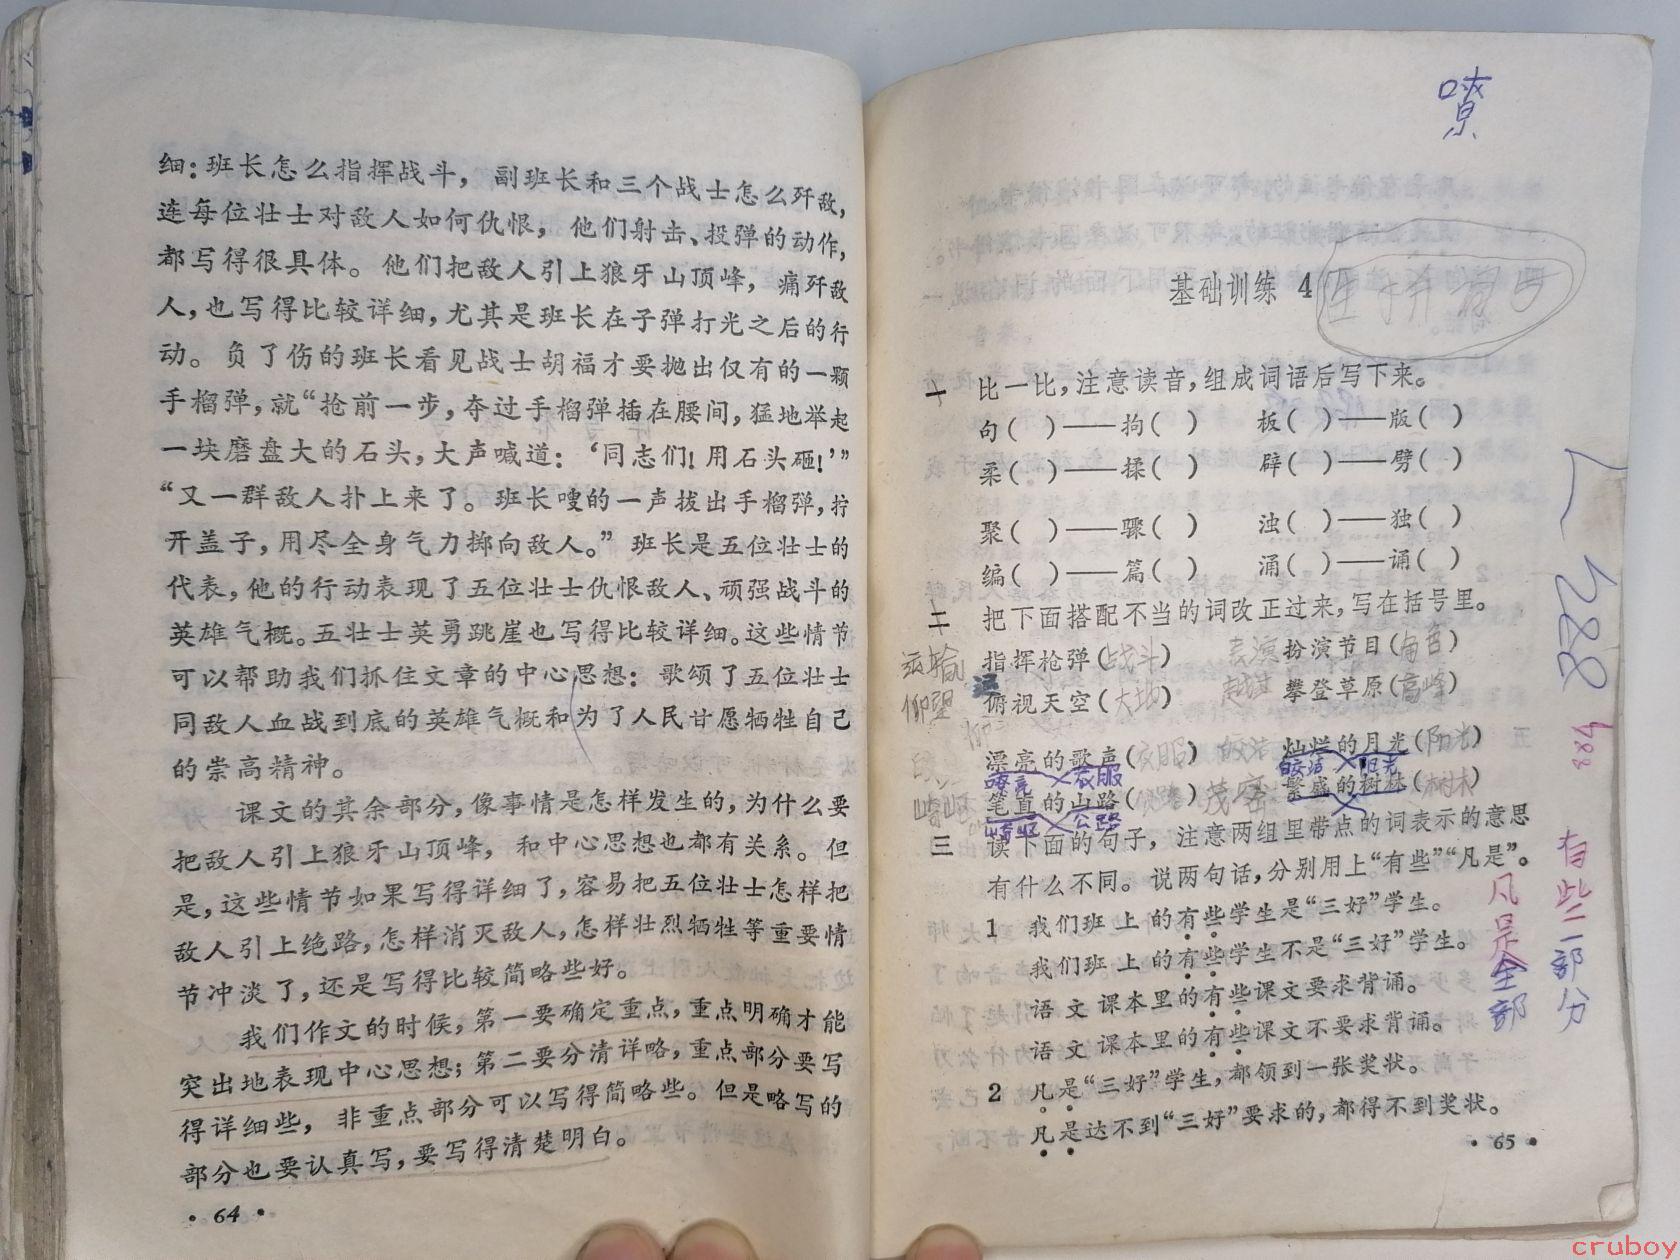 细：班长怎么指挥战斗，副班长和三个战士怎么歼敌，
连每位壮士对敌人如何仇恨，他们射击、投弹的动作，
都写得很具体。他们把敌人引上狼牙山顶峰，痛歼敌
人，也写得比较详细，尤其是班长在子弹打光之后的行
动。负了伤的班长看见战士胡福才要抛出仅有的一颗
手榴弹，就“抢前一步，夺过手榴弹插在腰间，猛地举起
一块磨盘大的石头，大声喊道：‘同志们！用石头砸！’”
“又一群敌人扑上来了。班长嗖的一声拔出手榴弹，拧
开盖子，用尽全身气力掷向敌人。”班长是五位壮士的
代表，他的行动表现了五位壮士仇恨敌人、顽强战斗的
英雄气概。五壮士英勇跳崖也写得比较详细。这些情节
可以帮助我们抓住文章的中心思想：歌颂了五位壮士
同敌人血战到底的英雄气概和为了人民甘愿牺牲自己
的崇高精神。
课文的其余部分，像事情是怎样发生的，为什么要
把敌人引上狼牙山顶峰，和中心思想也都有关系。但
是，这些情节如果写得详细了，容易把五位壮士怎样把
敌人引上绝路，怎样消灭敌人，怎样壮烈牺牲等重要情
节冲淡了，还是写得比较简略些好。
我们作文的时候，第一要确定重点，重点明确才能
突出地表现中心思想；第二要分清详略，重点部分要写
得详细些，非重点部分可以写得简略些。但是略写的
部分也要认真写，要写得清楚明白。
·64·
嘹
基础训练 4
一 比一比，注意读音，组成词语后写下来。
句( )——拘( ) 板( )——版( )
柔( )——揉( ) 辟( )——劈( )
聚( )——骤( ) 浊( )——独( )
编( )——篇( ) 涌( )——诵( )
二 把下面搭配不当的词改正过来，写在括号里。
运输 指挥枪弹(战斗) 表演 扮演节目(角色)
仰望 俯视天空(大地) 越过 攀登草原(高峰)
漂亮的歌声(衣服) 皎洁 灿烂的月光(阳光)
嘹亮 衣服 皎洁 阳光
崎岖 笔直的山路( ) 茂密 繁盛的树林(树林)
崎岖 公路
三 读下面的句子，注意两组里带点的词表示的意思
有什么不同。说两句话，分别用上“有些”“凡是”。
1 我们班上的有些学生是“三好”学生。
我们班上的有些学生不是“三好”学生。
语文课本里的有些课文要求背诵。
语文课本里的有些课文不要求背诵。
2 凡是“三好”学生，都领到一张奖状。
凡是达不到“三好”要求的，都得不到奖状。
·65·
凡是全部
有些一部分
cruboy